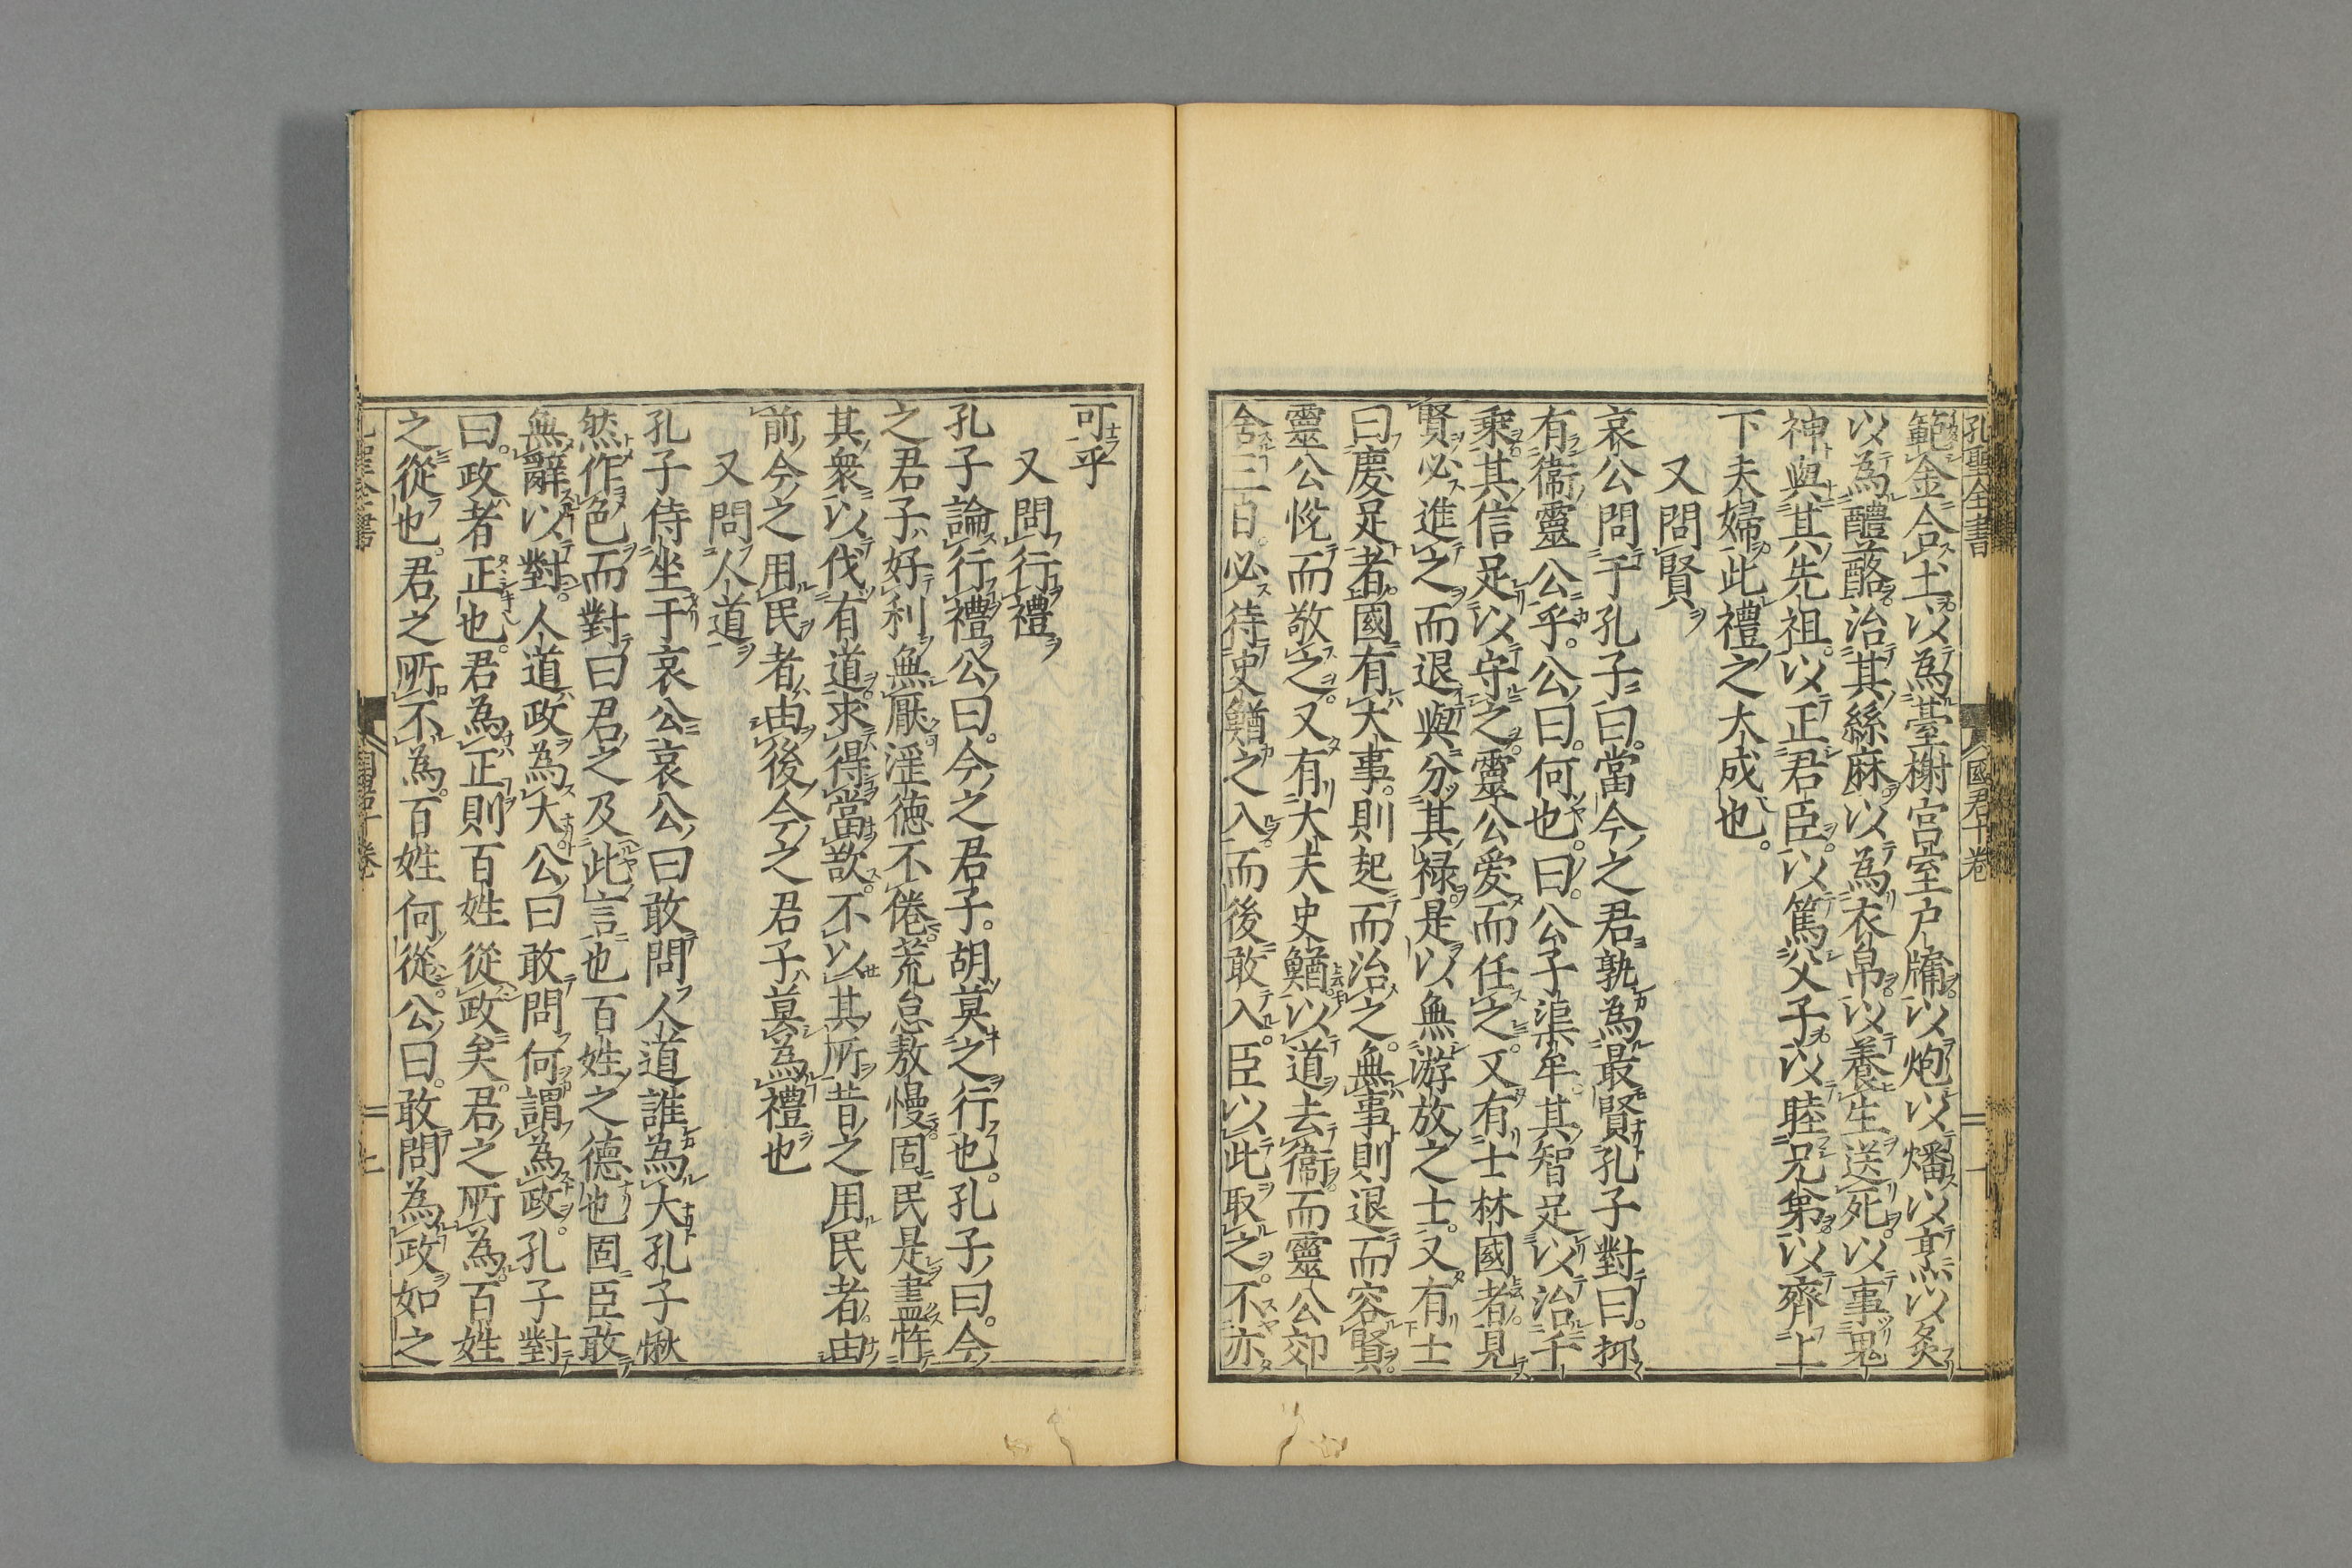 孔聖全書 國君十卷
範金合土以為臺榭宮室戶牖以炮以燔以烹以炙
以為醴酪治其絲麻以為衣帛以養生送死以事鬼
神與其先祖以正君臣以篤父子以睦兄弟以齊上
下夫婦此禮之大成也
又問賢
哀公問于孔子曰當今之君孰為最賢孔子對曰抑
有衞靈公乎公曰何也曰公子渠牟其智足以治千
乘其信足以守之靈公愛而任之又有士林國者見
賢必進之而退與分其祿是以無游放之士又有士
曰慶足者國有大事則起而治之無事則退而容賢
靈公悅而敬之又有大夫史鰌以道去衞而靈公郊
舍三日必待史鰌之入而後敢入臣以此取之不亦
可乎
又問行禮
孔子論行禮公曰今之君子胡莫之行也孔子曰今
之君子好利無厭淫德不倦荒怠敖慢固民是盡忤
其衆以伐有道求得當欲不以其所昔之用民者由
前今之用民者由後今之君子莫為禮也
又問人道
孔子侍坐于哀公哀公曰敢問人道誰為大孔子愀
然作色而對曰君之及此言也百姓之德也固臣敢
無辭以對人道政為大公曰敢問何謂為政孔子對
曰政者正也君為正則百姓從政矣君之所為百姓
之從也君之所不為百姓何從公曰敢問為政如之